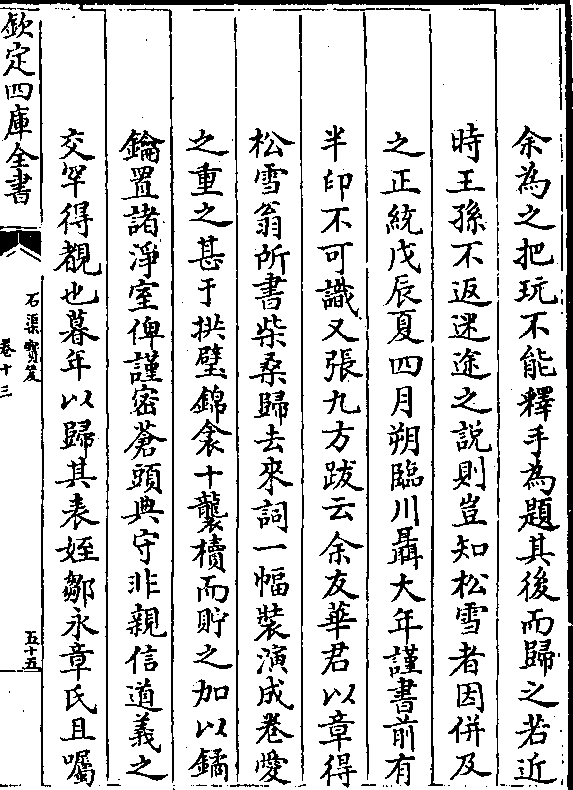 余為之把玩不能釋手為題其後而歸之若近
時王孫不返迷途之説則豈知松雪者因併及
之正統戊辰夏四月朔臨川聶大年謹書前有
半印不可識又張九方跋云余友華君以章得
松雪翁所書柴桑歸去來詞一幅裝演成卷愛
之重之甚于拱璧錦衾十襲櫝而貯之加以鐍
鑰置諸淨室俾謹密蒼頭典守非親信道義之
交罕得覩也暮年以歸其表姪鄒永章氏且囑
欽定四庫全書
石渠寶笈
卷十三
五十五